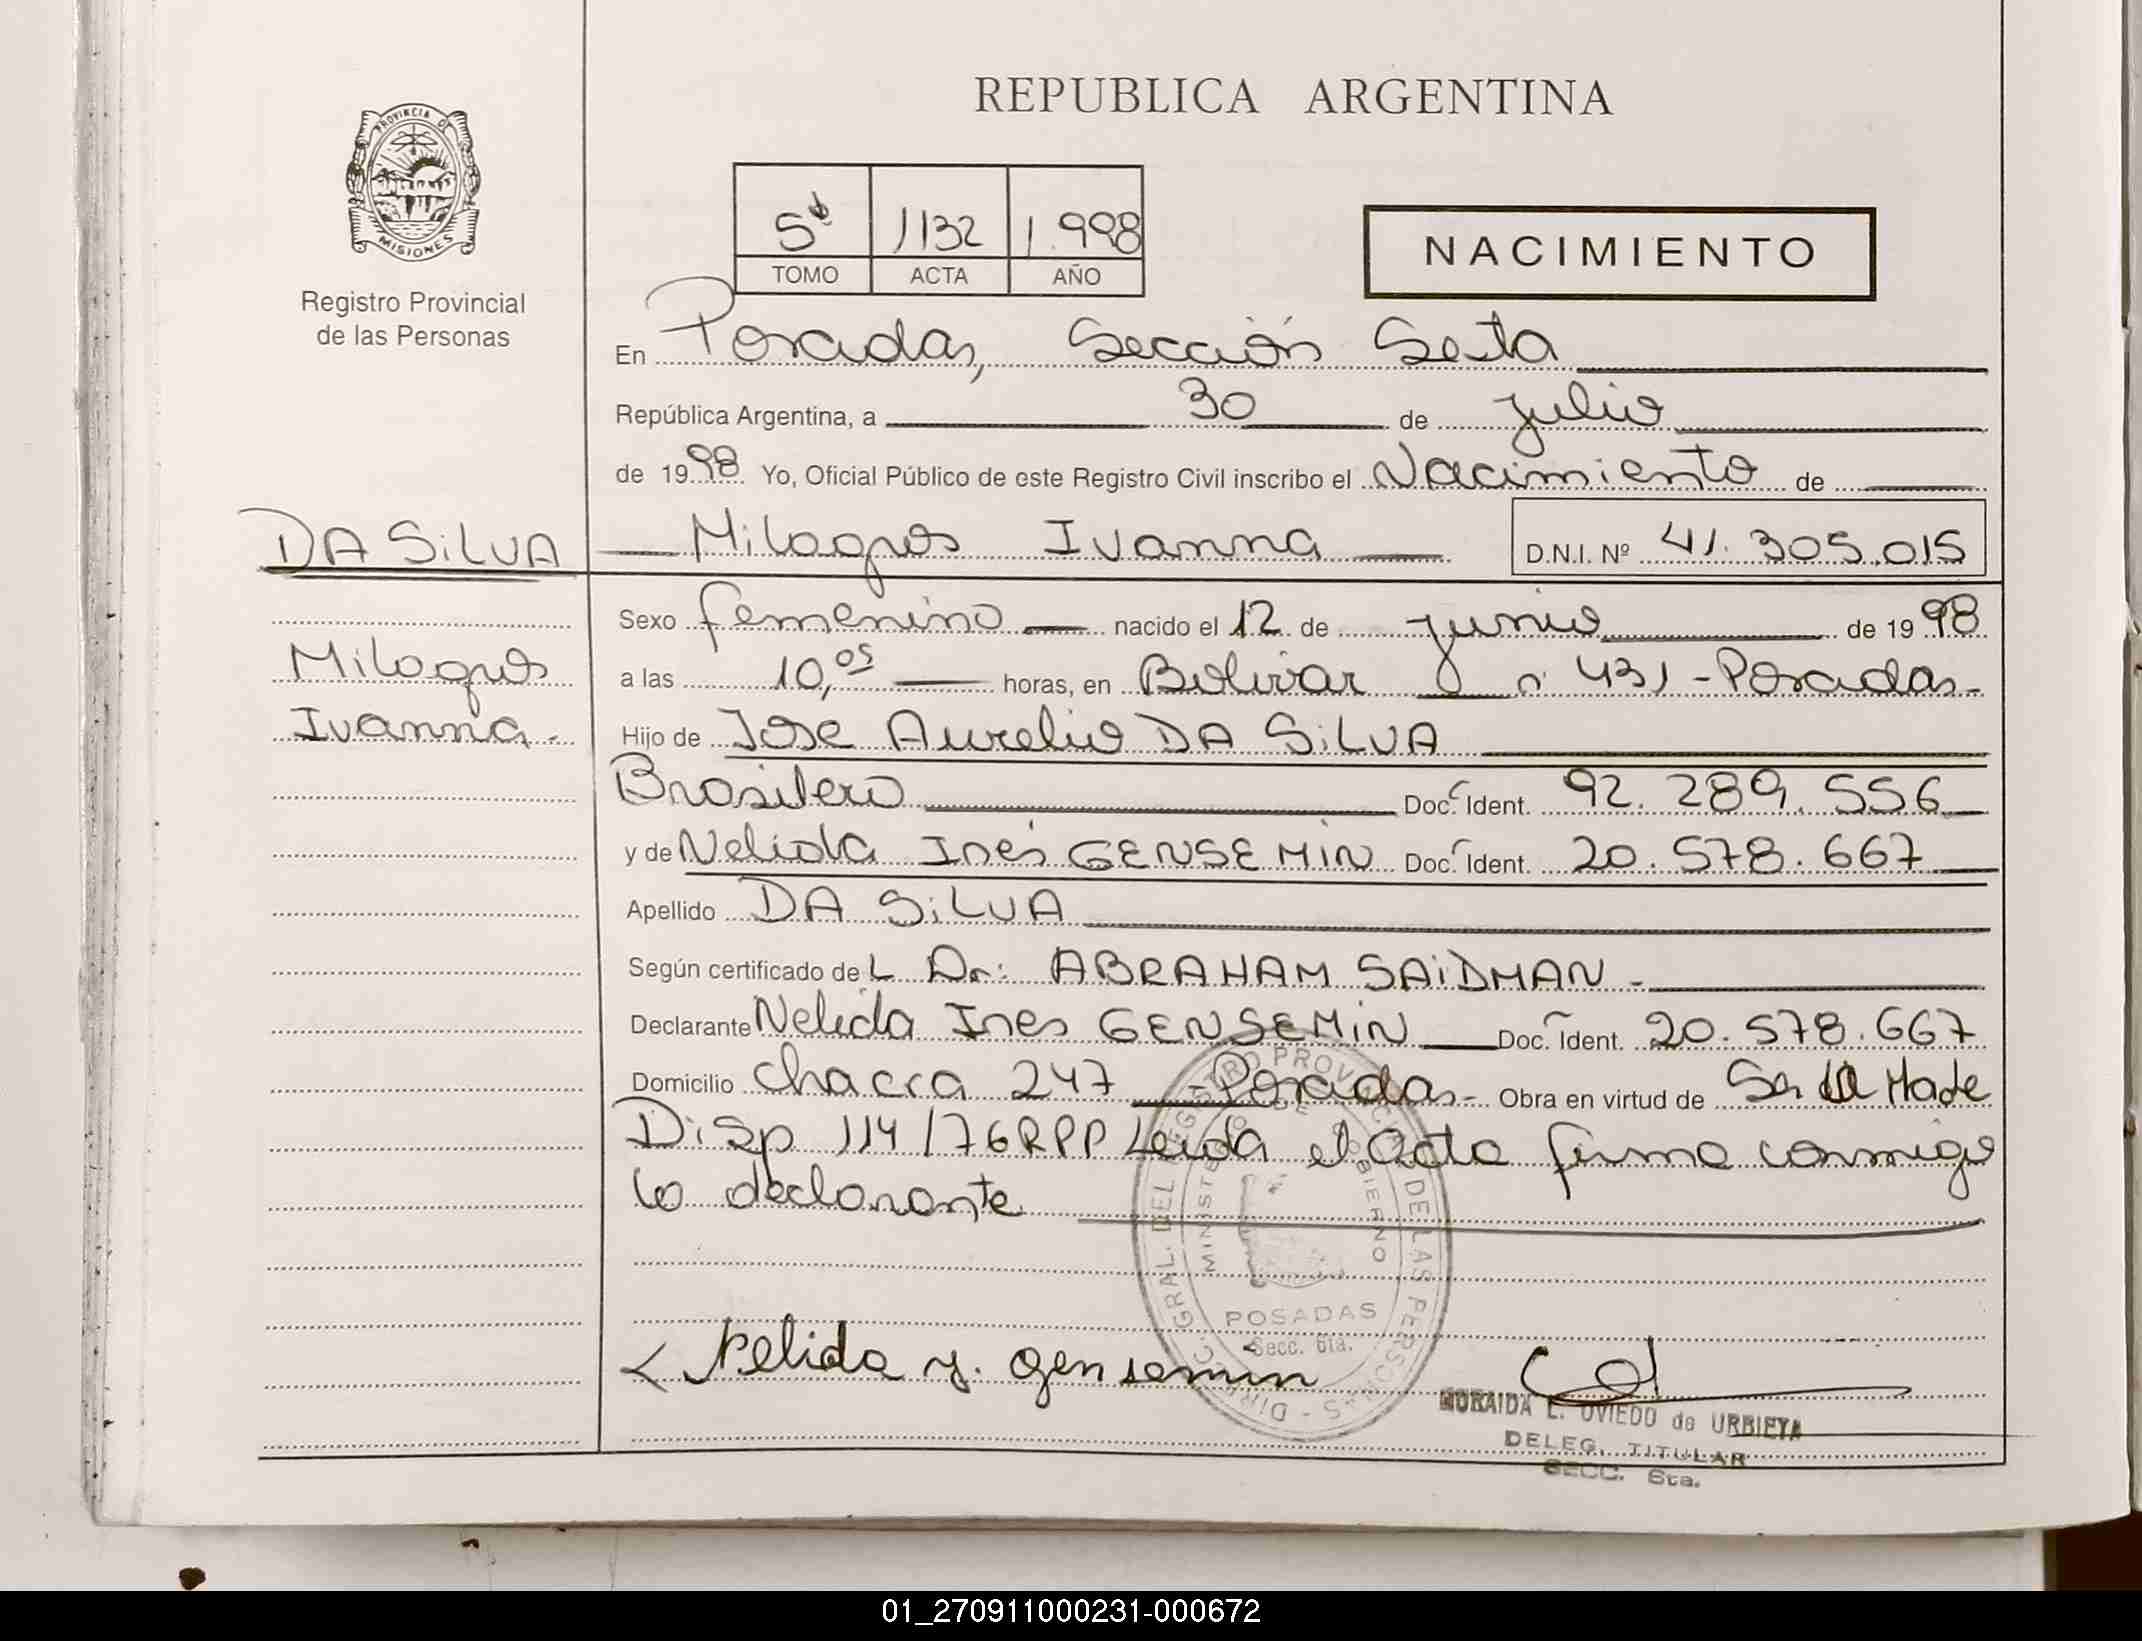 REPUBLICA ARGENTINA
PROVINCIA DE
MISIONES
Registro Provincial
de las Personas
5º 1132 1.998
TOMO ACTA AÑO
NACIMIENTO
En Posadas, Sección Sexta
República Argentina, a 30 de julio
de 1998 Yo, Oficial Público de este Registro Civil inscribo el Nacimiento de
DA SiLVA Milagros Ivanna D.N.I. Nº 41.305.015
Sexo femenino nacido el 12 de junio de 1998
Milagros
a las 10,05 horas, en Bolivar nº 431 - Posadas -
Ivanna -
Hijo de Jose Aurelio DA SiLVA
Brasilero Doc. Ident. 92.289.556
y de Nelida Inés GENSEMIN Doc. Ident. 20.578.667
Apellido DA SiLVA
Según certificado del Dr: ABRAHAM SAiDMAN -
Declarante Nelida Ines GENSEMiN Doc. Ident. 20.578.667
Domicilio Chacra 247 Posadas - Obra en virtud de Ser la Madre
Disp 114/76RPP Leida el acta firma conmigo
la declarante
DIREC. GRAL. DEL REGISTRO PROVINCIAL DE LAS PERSONAS -
MINISTERIO DE GOBIERNO
POSADAS
Secc. 6ta.
Nelida y. gensemin
MORAIDA L. OVIEDO de URBIETA
DELEG. TITULAR
SECC. 6ta.
01_270911000231-000672